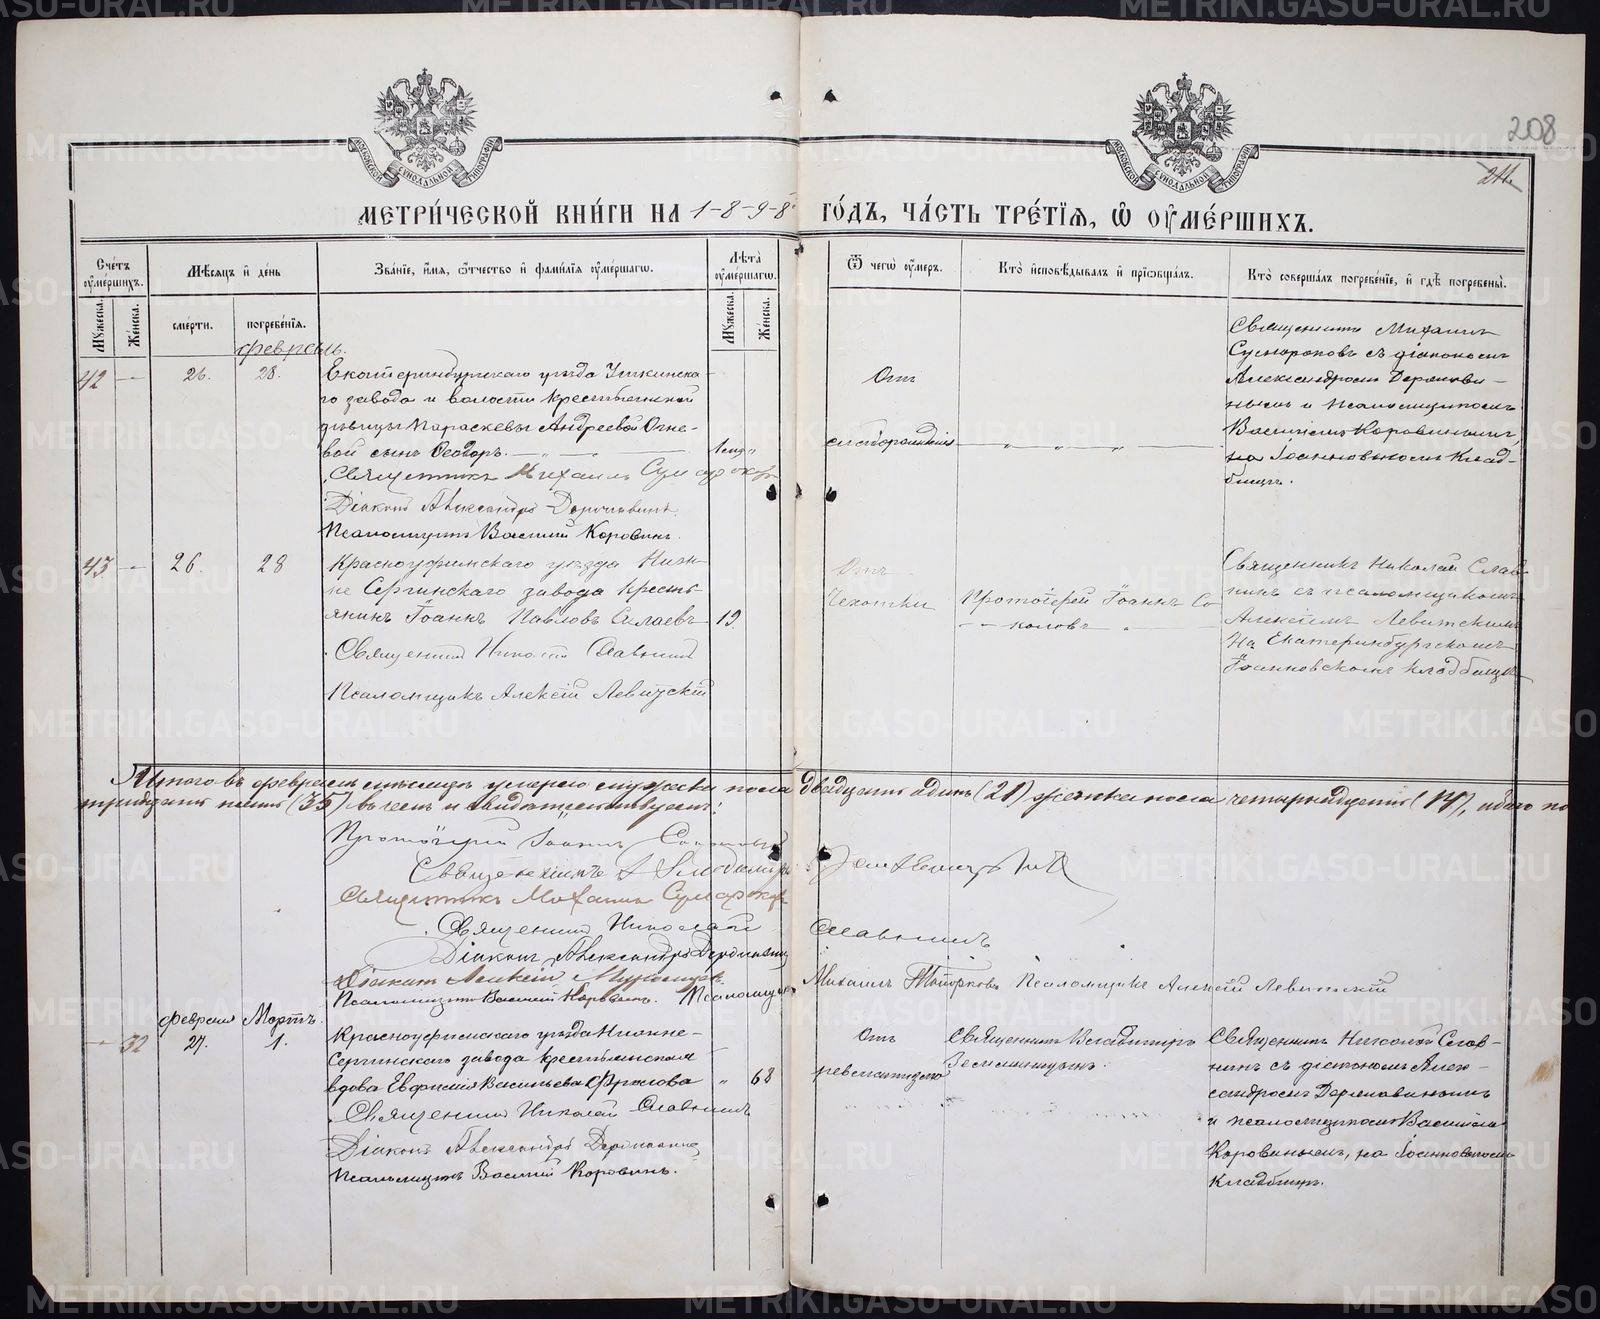 208
211
МЕТРИ́ЧЕСКОЙ КНИ́ГИ НА 1-8-9-8 ГО́ДЪ, ЧА́СТЬ ТРЕ́ТЇѦ, Ѡ ОУМЕ́РШИХЪ.
Сче́тъ оумершихъ.
Мꙋжеска.
Же́нска.
Мѣ́сѧцъ и де́нь
сме́рти.
погребе́нїѧ.
Зва́нїе, и́мѧ, ѻ́тчество и фами́лїѧ оуме́ршагѡ.
Лѣ́та оуме́ршагѡ.
Мꙋжеска.
Же́нска.
Ѿ чегѡ̀ оу́меръ.
Кто̀ и҆сповѣ́дывалъ и прїѡбща́лъ.
Кто̀ соверша́лъ погребе́нїе, и гдѣ̀ погребены̀.
февраль.
42 — 26. 28.
Екатеринбургскаго уѣзда Уткинска-
го завода и волости крестьянской
дѣвицы Параскевы Андреевой Огне-
вой сынъ Ѳеодоръ.
1 мѣс.
Священникъ Михаилъ Сумароковъ
Діаконъ Александръ Державинъ.
Псаломщикъ Василій Коровинъ.
Отъ
слабораждения
Священникъ Михаилъ
Сумароковъ съ діакономъ
Александромъ Держави-
нымъ и псаломщикомъ
Василіемъ Коровинымъ,
на Іоанновскомъ клад-
бищѣ.
43 — 26. 28
Красноуфимскаго уѣзда Ниж-
не Сергинскаго завода кресть-
янинъ Іоаннъ Павловъ Силаевъ
19.
Священникъ Николай Славнинъ
Псаломщикъ Алексій Левитскій
Отъ
Чахотки
Протоіерей Іоаннъ Со-
коловъ
Священникъ Николай Слав-
нинъ съ псаломщикомъ
Алексіемъ Левитскимъ
На Екатеринбургскомъ
Іоанновскомъ кладбищѣ
Итого въ февралѣ мѣсяцѣ умерло мужеска пола двадцать одинъ (21) женска пола четырнадцать (14), обоего по
тридцать пять (35) въ чемъ и свидѣтельствуемъ:
Протоіерей Іоаннъ Соколовъ
Священникъ Владиміръ Земляницынъ
Священникъ Михаилъ Сумароковъ
Священникъ Николай Славнинъ
Діаконъ Александръ Державинъ
Діаконъ Алексій
Псаломщикъ Василій Коровинъ. Псаломщикъ Михаилъ Псаломщикъ Алексій Левитскій
февраля Мартъ.
— 32 27. 1.
Красноуфимскаго уѣзда Нижне-
Сергинскаго завода крестьянская
вдова Евфимія Васильева Фролова
" 68
Священникъ Николай Славнинъ
Діаконъ Александръ Державинъ
Псаломщикъ Василій Коровинъ.
Отъ
ревматизма
Священникъ Владиміръ
Земляницынъ
Священникъ Николай Слав-
нинъ съ діакономъ Алек-
сандромъ Державинымъ
и псаломщикомъ Василіемъ
Коровинымъ, на Іоанновскомъ
кладбищѣ.